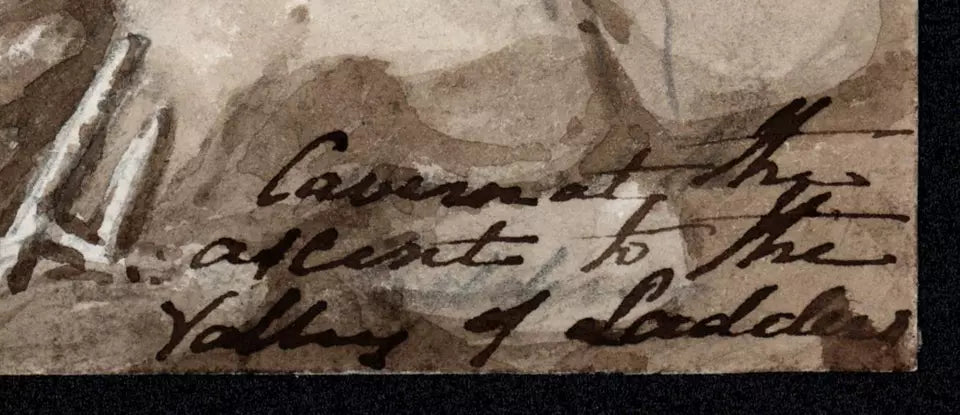 Cavern at the
ascent to the
Valley of Ladders